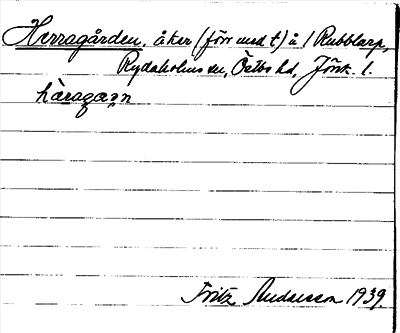 Herragården, åker (förr med t) å 1 Rubblarp,
Rydaholms sn, Östbo hd, Jönk. l.
hæragæ̣ṇ
Fritz Andersson 1939.